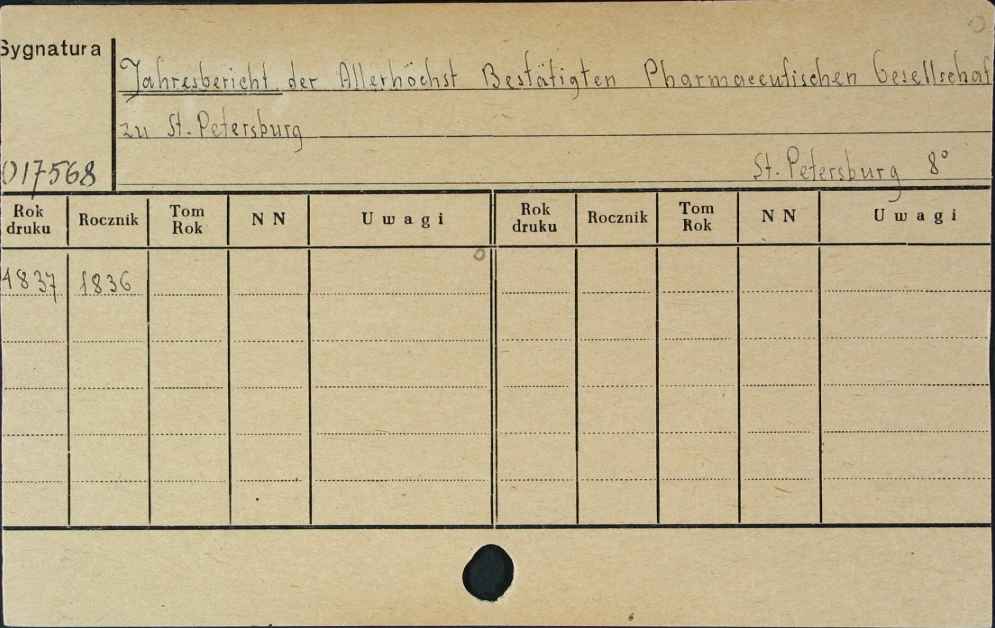 Sygnatura
Jahresbericht der Allerhöchst Bestätigten Pharmaceutischen Gesellschaf
zu St. Petersburg
017568
St. Petersburg 8°
Rok druku Rocznik Tom Rok N N Uwagi Rok druku Rocznik Tom Rok N N Uwagi
1837 1836